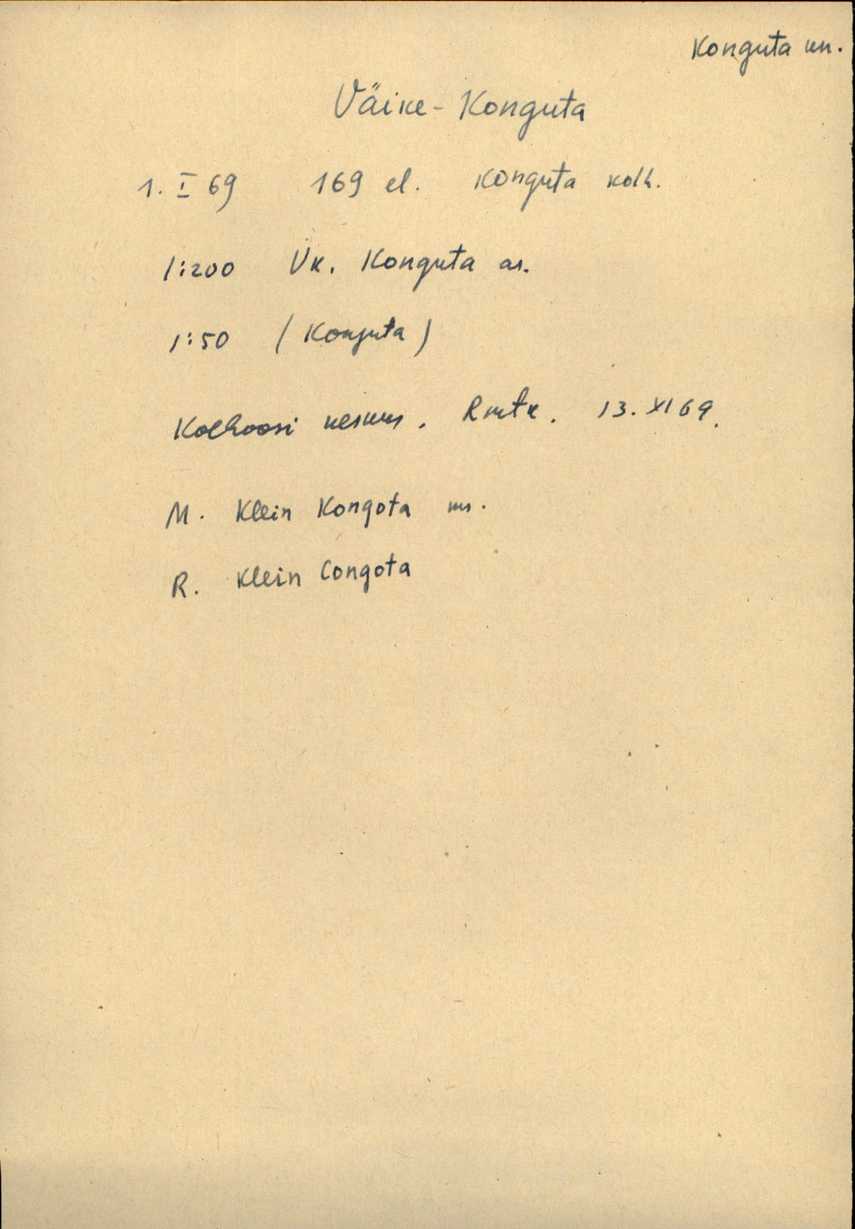 Konguta kn.
Väike-Konguta
1. I 69 169 el. Konguta kolh.
1:200 Vk. Konguta as.
1:50 (Konguta)
Kolhoosi keskus. Rmtk. 13. XI 69.
M. Klein Kongota ms.
R. Klein Congota